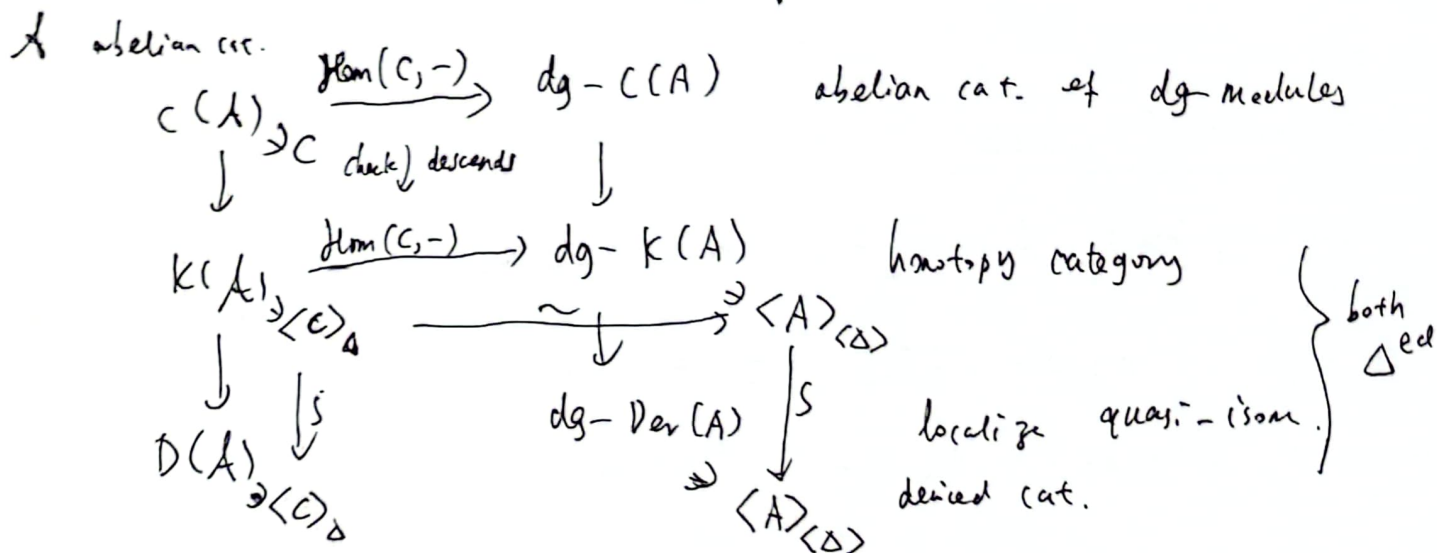 A abelian cat.
C(A)∋C Hom(C,-) → dg-C(A) abelian cat. of dg-modules
↓ check ↓ descends ↓
K(A)∋<C>Δ Hom(C,-) → dg-K(A) homotopy category
∼ → ∋<A><Δ> both Δed
↓ ↓S ↓ ↓S
dg-Der(A) localize quasi-isom.
D(A)∋<C>Δ ∋<A><Δ> derived cat.